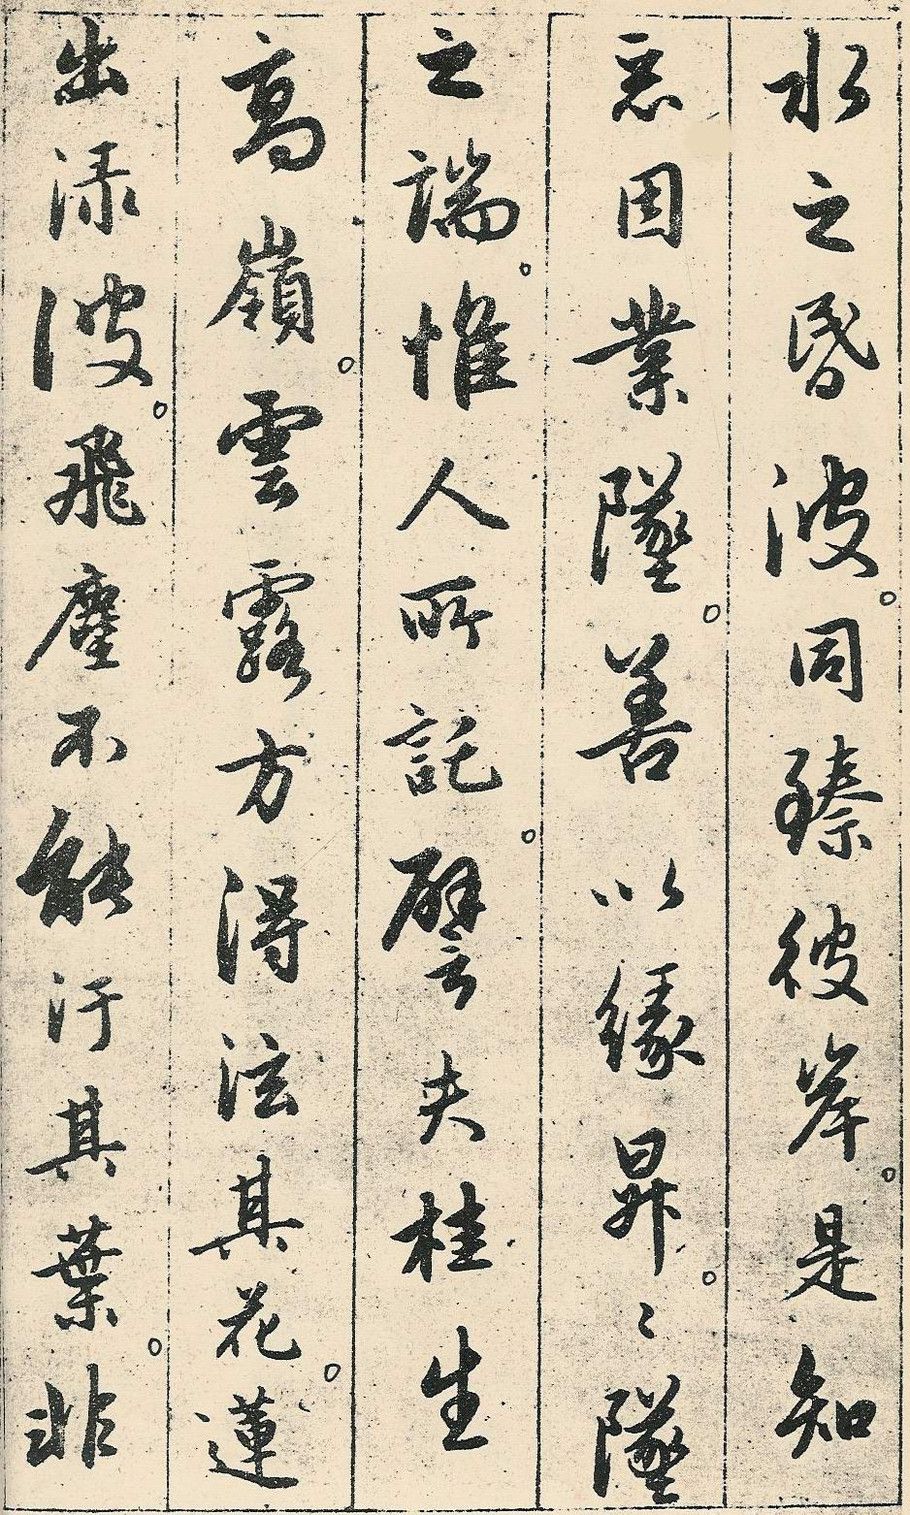 水之昬波。同臻彼岸。是知
惡因業墜。善以緣昇。〻墜
之端。惟人所託。譬夫桂生
高嶺。雲露方得泫其花。蓮
出淥波。飛塵不能汙其葉。非